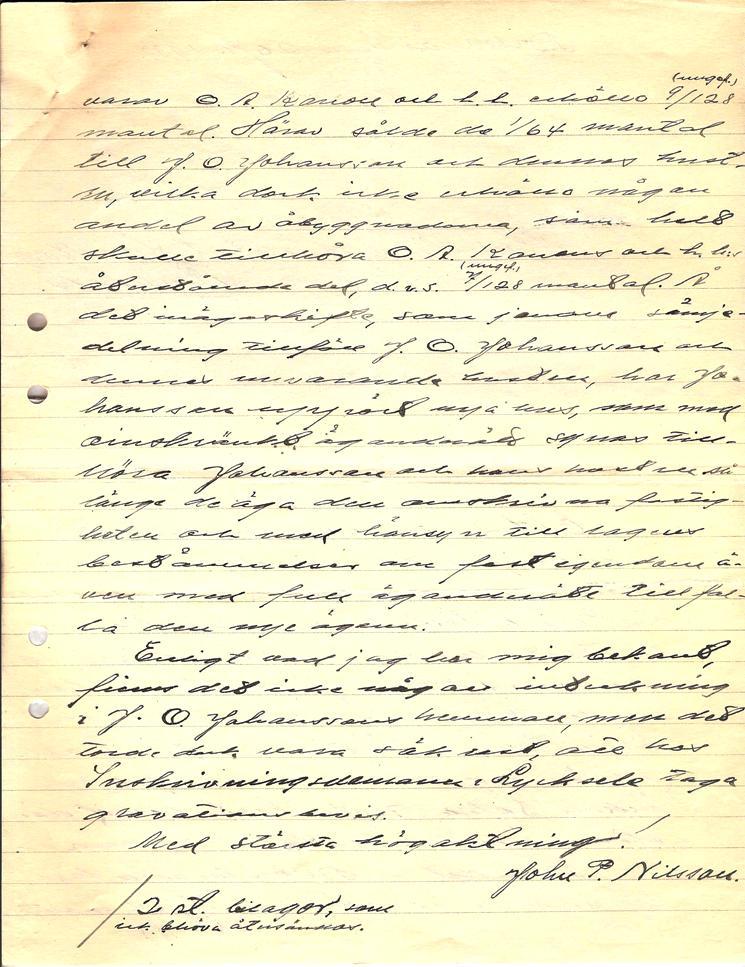 (ungef.)
varav O. A. Kanon och h. h. erhöllo 9/128
mantal. Härav sålde de 1/64 mantal
till J. O. Johansson och dennes hust-
ru, vilka dock icke erhöllo någon
andel av åbyggnaderna, som helt
skulle tillhöra O. A. Kanons och h. h:s
(ungef.)
återstående del, d.v.s. 7/128 mantal. Å
det ägoskifte, som genom sämje-
delning tillföll J. O. Johansson och
dennes nuvarande hustru, har Jo-
hansson uppfört nya hus, som med
oinskränkt äganderätt synas till-
höra Johansson och hans hustru så
länge de äga den omskrivna fastig-
heten och med hänsyn till lagens
bestämmelser om fast egendom ä-
ven med full äganderätt tillfal-
la den nye ägaren.
Enligt vad jag har mig bekant,
finns det icke någon inteckning
i J. O. Johanssons hemman, men det
torde dock vara säkrast, att hos
Inskrivningsdomaren i Lycksele taga
gravationsbevis.
Med största högaktning!
John P. Nilsson.
2 st. bilagor, som
ick. behöva återsändas.